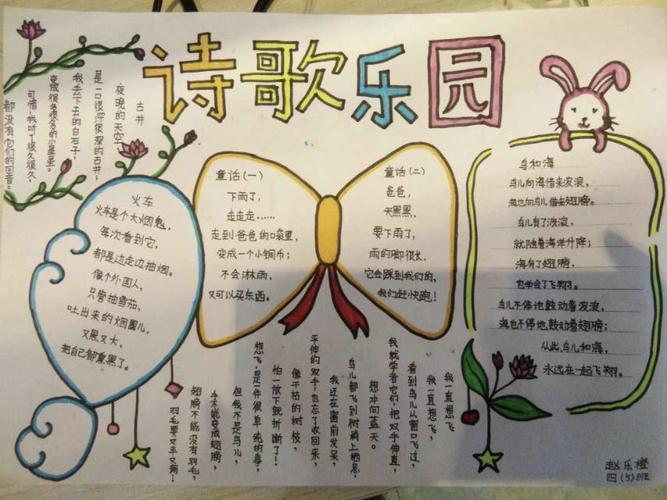 诗歌乐园
古井
夜晚的天空，
是一口很深很深的古井，
我丢下去的白石子，
变成很多很多的小星星。
可惜，我听了很久很久，
都没有它们的回音。
火车
火车是个大烟鬼，
每次看到它，
都是边走边抽烟。
像个外国人，
只管抽雪茄，
吐出来的烟圈儿，
又黑又大，
把自己都熏黑了。
童话（一）
下雨了，
走走走……
走到爸爸的口袋里，
变成一个小铜币；
不会淋雨，
又可以买东西。
童话（二）
爸爸，
天黑黑，
要下雨了，
雨的脚很长，
它会踩到我们的，
我们赶快跑！
鸟和海
鸟儿向海借来波浪，
海也向鸟儿借来翅膀；
鸟儿有了波浪，
就随着海洋升降；
海有了翅膀，
也学会了飞翔。
鸟儿不停地鼓动着波浪，
海也不停地鼓动着翅膀；
从此，鸟儿和海，
永远在一起飞翔。
我一直想飞
我一直想飞，
看到鸟儿从窗口飞过，
想冲向蓝天。
我就学着它们，把双手伸直，
鸟儿都飞到树梢上栖息，
我还在窗前发呆，
平伸的双手，也忘了收回来，
像干枯的树枝，
怕一放下就折断了！
想飞，是一件很单纯的事，
但我不是鸟儿，
手不能变成翅膀，
翅膀不能没有羽毛，
羽毛要又丰又满！
赵乐橙
四（5）班